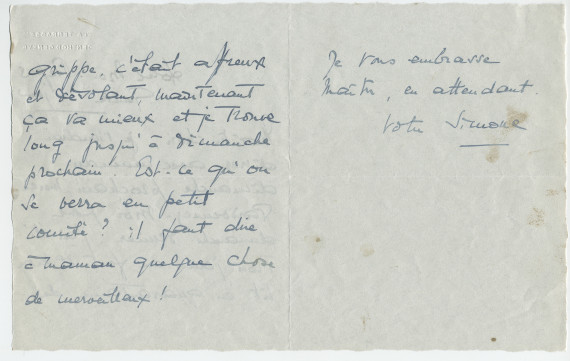 grippe, c'était affreux
et désolant, maintenant
ça va mieux et je trouve
long jusqu'à dimanche
prochain. Est-ce qu'on
se verra en petit
comité? il faut dire
à maman quelque chose
de merveilleux!
Je vous embrasse
Maître, en attendant.
votre Simone